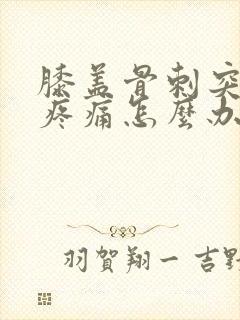 膝盖骨刺突
疼痛怎麼办
羽賀翔一 吉野